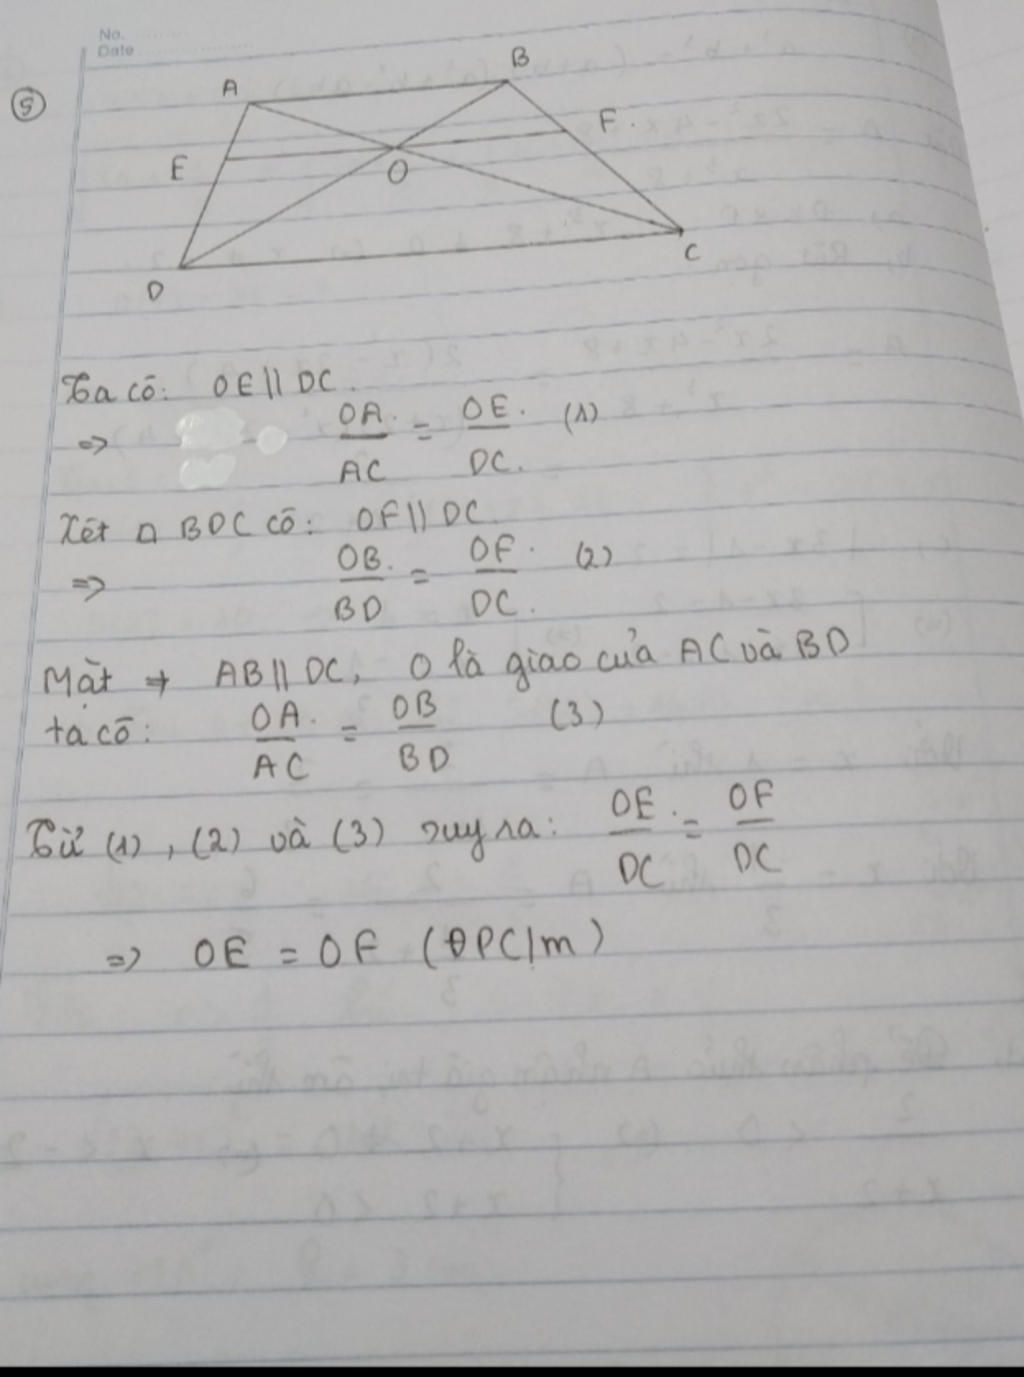 No.
Date
5
A
B
E
F.
O
D
C
Ta có: OE || DC.
=> OA/AC = OE/DC. (1)
Xét △ BDC có: OF || DC
=> OB/BD = OF/DC. (2)
Mặt → AB || DC, O là giao của AC và BD
ta có: OA/AC = OB/BD (3)
Từ (1), (2) và (3) suy ra: OE/DC = OF/DC
=> OE = OF (ĐPC/m)